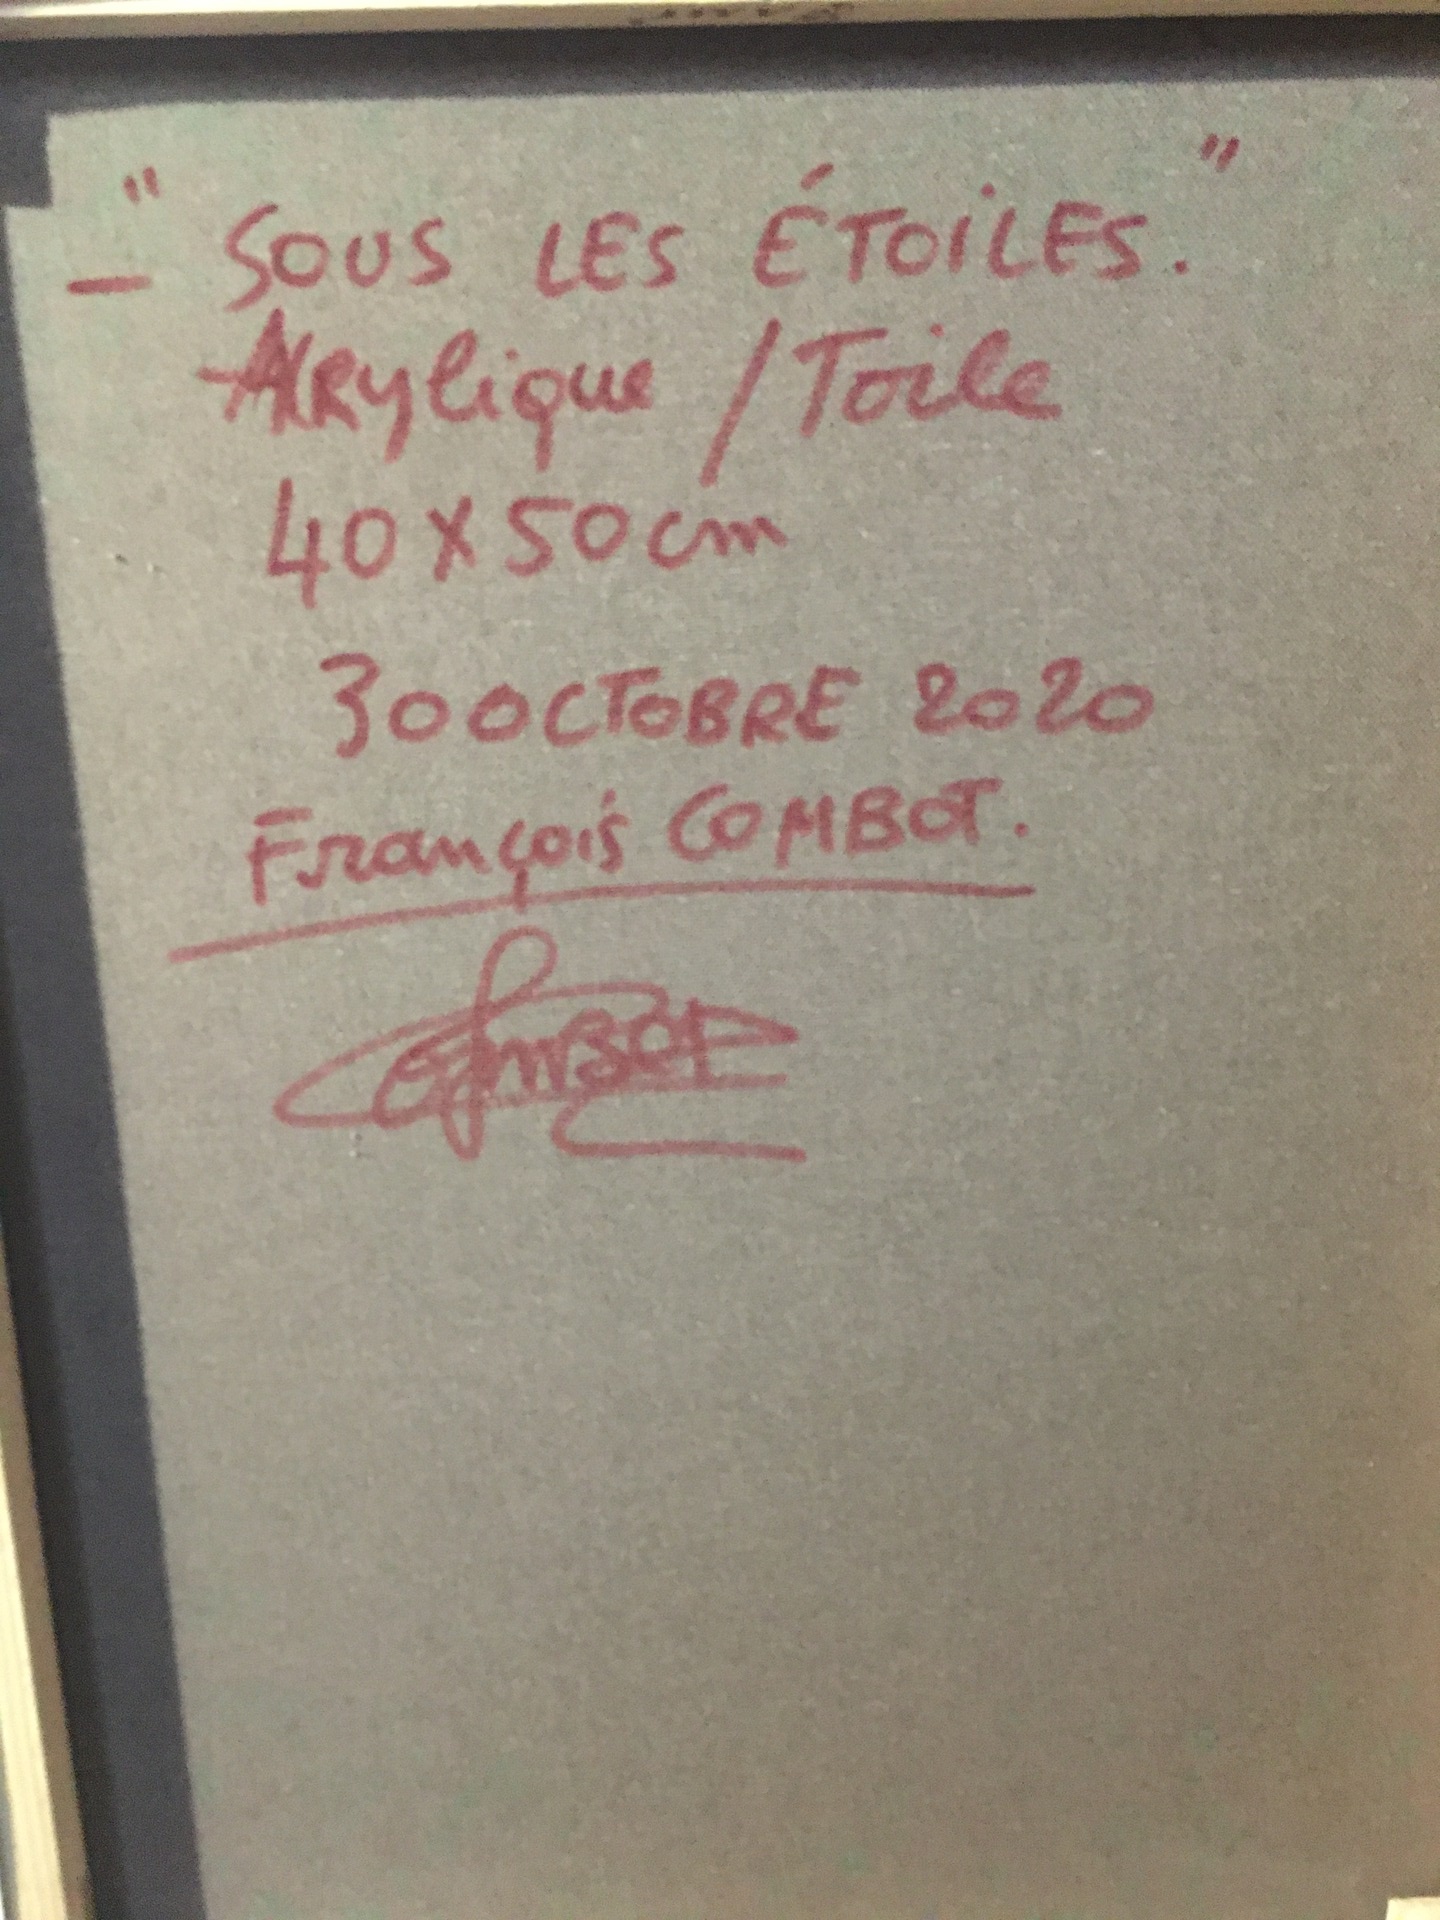 - " SOUS LES ÉTOILES. "
Akrylique / Toile
40 X 50 cm
30 OCTOBRE 2020
François COMBOT.
COMBOT